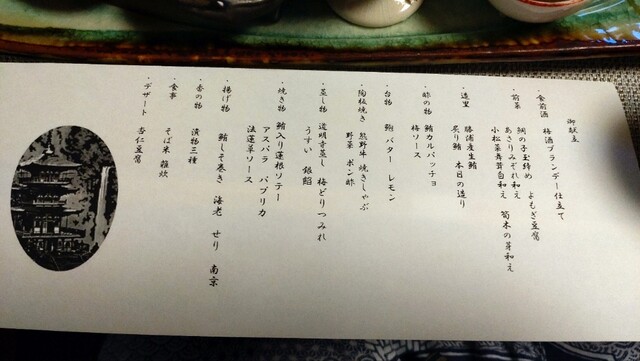 御献立
・食前酒 梅酒ブランデー仕立て
・前菜 鯛の子玉締め よもぎ豆腐
あさりみぞれ和え 筍木の芽和え
小松菜舞茸白和え
・造里 勝浦産生鮪
炙り鮪 本日の造り
・酢の物 鮪カルパッチョ
梅ソース
・台物 鮑 バター レモン
・陶板焼き 熊野牛 焼きしゃぶ
野菜 ポン酢
・蒸し物 道明寺蒸し 梅どりつみれ
うすい 銀餡
・焼き物 鮪入り蓮根ソテー
アスパラ パプリカ
法蓮草ソース
・揚げ物 鮪しそ巻き 海老 せり 南京
・香の物 漬物三種
・食事 そば米雑炊
・デザート 杏仁豆腐